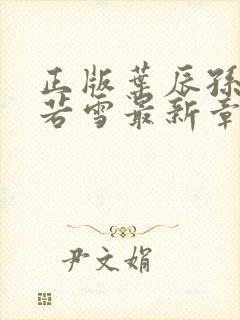 正版叶辰孙
若雪最新章
尹文娟